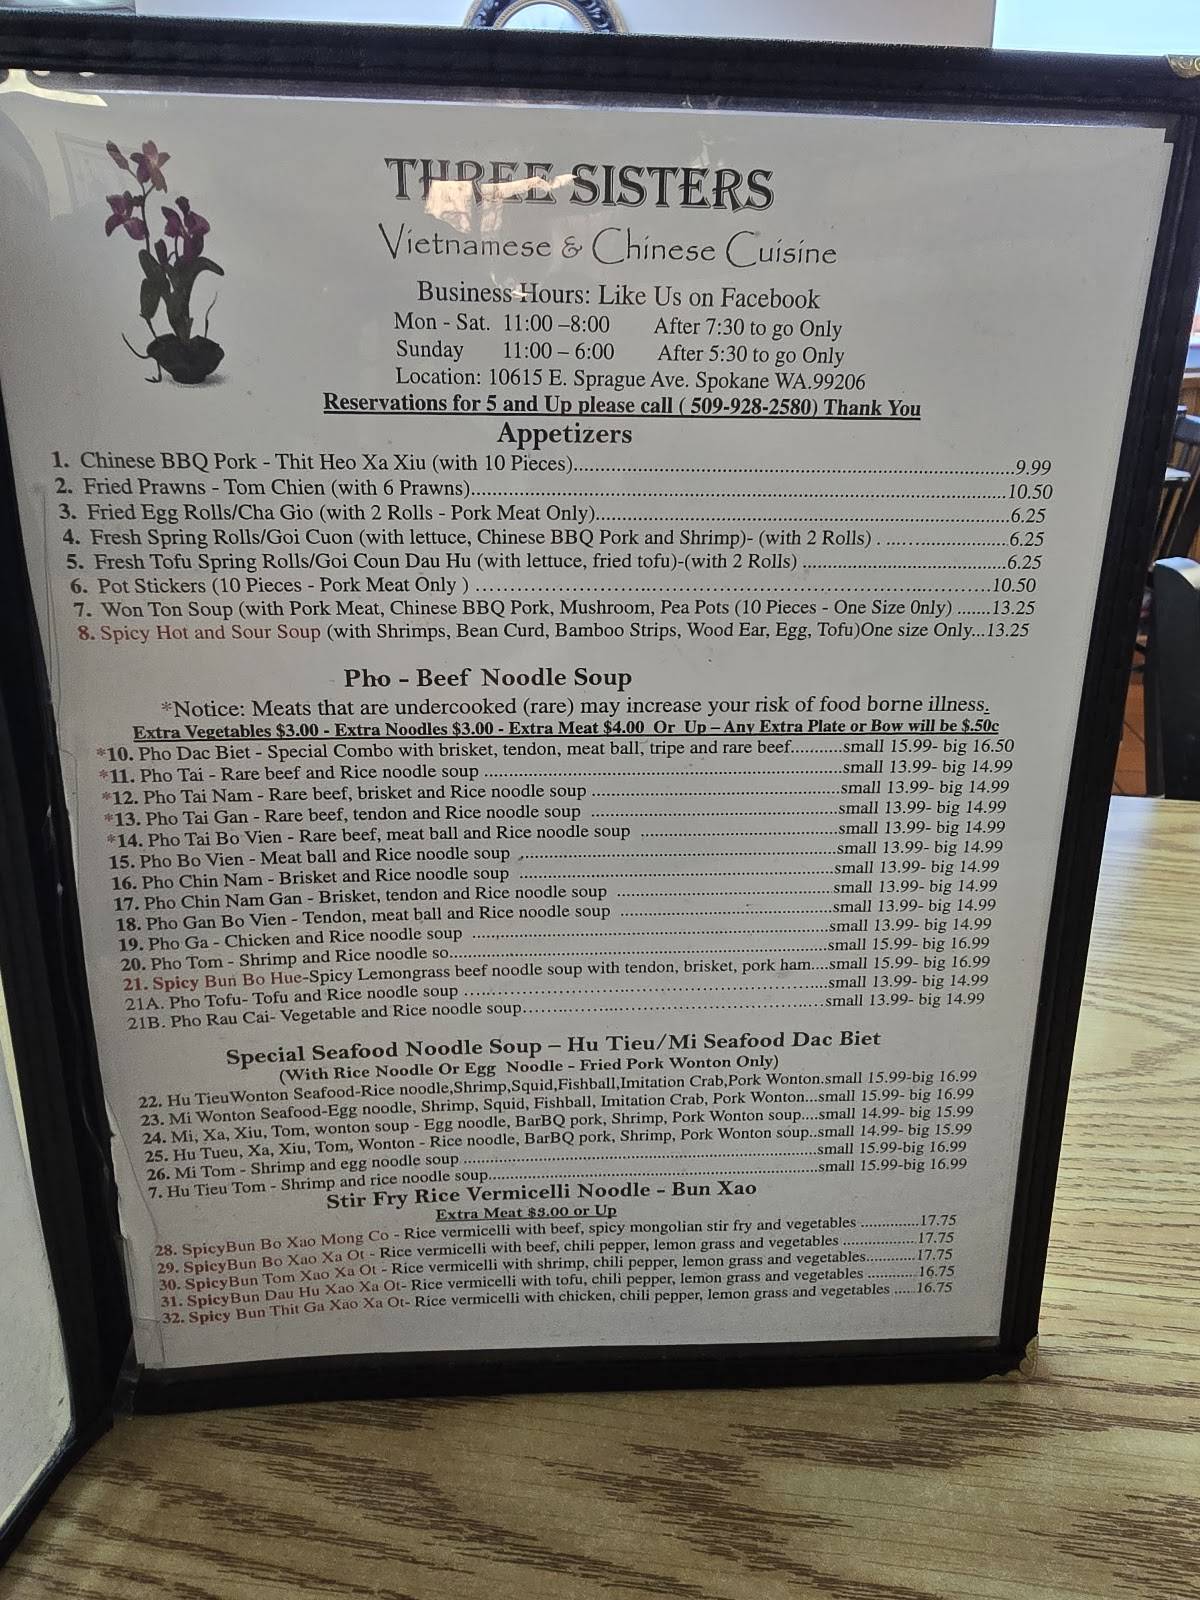 THREE SISTERS
Vietnamese & Chinese Cuisine
Business Hours: Like Us on Facebook
Mon - Sat. 11:00 –8:00 After 7:30 to go Only
Sunday 11:00 – 6:00 After 5:30 to go Only
Location: 10615 E. Sprague Ave. Spokane WA.99206
Reservations for 5 and Up please call ( 509-928-2580) Thank You
Appetizers
1. Chinese BBQ Pork - Thit Heo Xa Xiu (with 10 Pieces)....9.99
2. Fried Prawns - Tom Chien (with 6 Prawns)....10.50
3. Fried Egg Rolls/Cha Gio (with 2 Rolls - Pork Meat Only)....6.25
4. Fresh Spring Rolls/Goi Cuon (with lettuce, Chinese BBQ Pork and Shrimp)- (with 2 Rolls) ....6.25
5. Fresh Tofu Spring Rolls/Goi Coun Dau Hu (with lettuce, fried tofu)-(with 2 Rolls) ....6.25
6. Pot Stickers (10 Pieces - Pork Meat Only ) ....10.50
7. Won Ton Soup (with Pork Meat, Chinese BBQ Pork, Mushroom, Pea Pots (10 Pieces - One Size 0nly) .......13.25
8. Spicy Hot and Sour Soup (with Shrimps, Bean Curd, Bamboo Strips, Wood Ear, Egg, Tofu)One size Only...13.25
Pho - Beef Noodle Soup
*Notice: Meats that are undercooked (rare) may increase your risk of food borne illness.
Extra Vegetables $3.00 - Extra Noodles $3.00 - Extra Meat $4.00 Or Up – Any Extra Plate or Bow will be $.50c
*10. Pho Dac Biet - Special Combo with brisket, tendon, meat ball, tripe and rare beef..........small 15.99- big 16.50
*11. Pho Tai - Rare beef and Rice noodle soup ....small 13.99- big 14.99
*12. Pho Tai Nam - Rare beef, brisket and Rice noodle soup ....small 13.99- big 14.99
*13. Pho Tai Gan - Rare beef, tendon and Rice noodle soup ....small 13.99- big 14.99
*14. Pho Tai Bo Vien - Rare beef, meat ball and Rice noodle soup ....small 13.99- big 14.99
15. Pho Bo Vien - Meat ball and Rice noodle soup ....small 13.99- big 14.99
16. Pho Chin Nam - Brisket and Rice noodle soup ....small 13.99- big 14.99
17. Pho Chin Nam Gan - Brisket, tendon and Rice noodle soup ....small 13.99- big 14.99
18. Pho Gan Bo Vien - Tendon, meat ball and Rice noodle soup ....small 13.99- big 14.99
19. Pho Ga - Chicken and Rice noodle soup ....small 13.99- big 14.99
20. Pho Tom - Shrimp and Rice noodle so....small 15.99- big 16.99
21. Spicy Bun Bo Hue-Spicy Lemongrass beef noodle soup with tendon, brisket, pork ham....small 15.99- big 16.99
21A. Pho Tofu- Tofu and Rice noodle soup ....small 13.99- big 14.99
21B. Pho Rau Cai- Vegetable and Rice noodle soup....small 13.99- big 14.99
Special Seafood Noodle Soup – Hu Tieu/Mi Seafood Dac Biet
(With Rice Noodle Or Egg Noodle - Fried Pork Wonton Only)
22. Hu TieuWonton Seafood-Rice noodle,Shrimp,Squid,Fishball,Imitation Crab,Pork Wonton.small 15.99-big 16.99
23. Mi Wonton Seafood-Egg noodle, Shrimp, Squid, Fishball, Imitation Crab, Pork Wonton...small 15.99- big 16.99
24. Mi, Xa, Xiu, Tom, wonton soup - Egg noodle, BarBQ pork, Shrimp, Pork Wonton soup....small 14.99- big 15.99
25. Hu Tueu, Xa, Xiu, Tom, Wonton - Rice noodle, BarBQ pork, Shrimp, Pork Wonton soup..small 14.99- big 15.99
26. Mi Tom - Shrimp and egg noodle soup ....small 15.99-big 16.99
7. Hu Tieu Tom - Shrimp and rice noodle soup....small 15.99-big 16.99
Stir Fry Rice Vermicelli Noodle - Bun Xao
Extra Meat $3.00 or Up
28. SpicyBun Bo Xao Mong Co - Rice vermicelli with beef, spicy mongolian stir fry and vegetables ..............17.75
29. SpicyBun Bo Xao Xa Ot - Rice vermicelli with beef, chili pepper, lemon grass and vegetables ..................17.75
30. SpicyBun Tom Xao Xa Ot - Rice vermicelli with shrimp, chili pepper, lemon grass and vegetables............17.75
31. SpicyBun Dau Hu Xao Xa Ot- Rice vermicelli with tofu, chili pepper, lemon grass and vegetables ............16.75
32. Spicy Bun Thit Ga Xao Xa Ot- Rice vermicelli with chicken, chili pepper, lemon grass and vegetables ......16.75